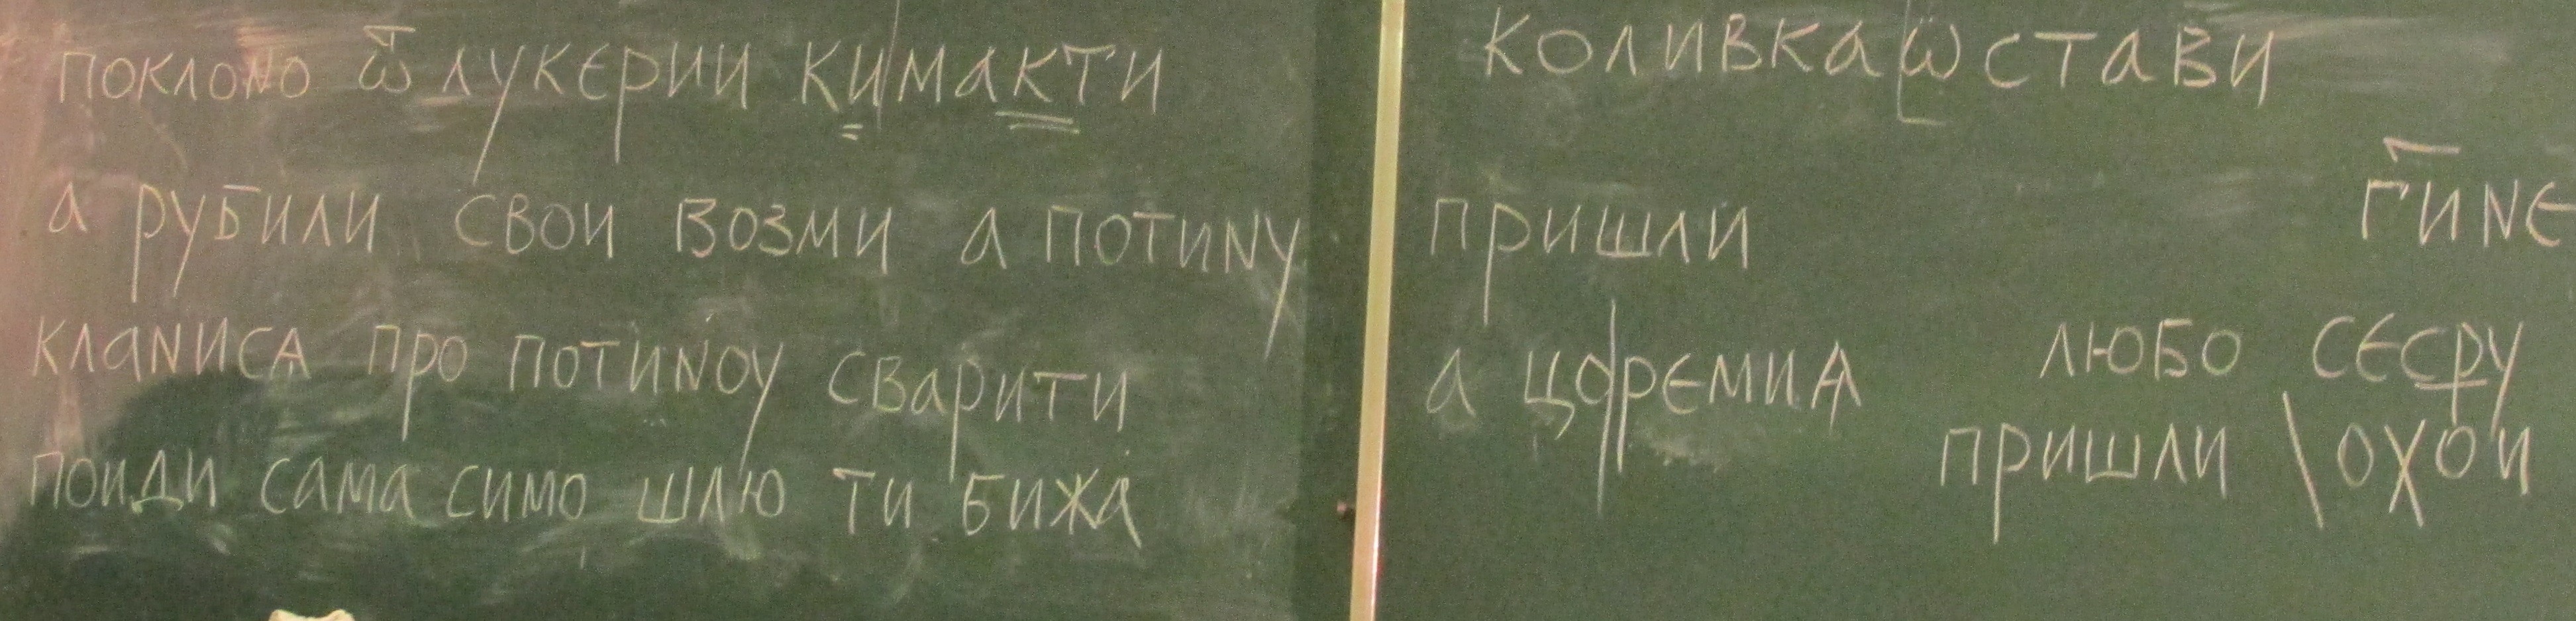 поклоno ѿ лукерии ки|макти
а рубили свои возми а потиnу
клаnисѧ про потиnоу сварити
поиди сама симо шлю ти бижа
коливка ѡстави
пришли г҃иnе
а цо|ремиѧ любо сесру
пришли \ охои